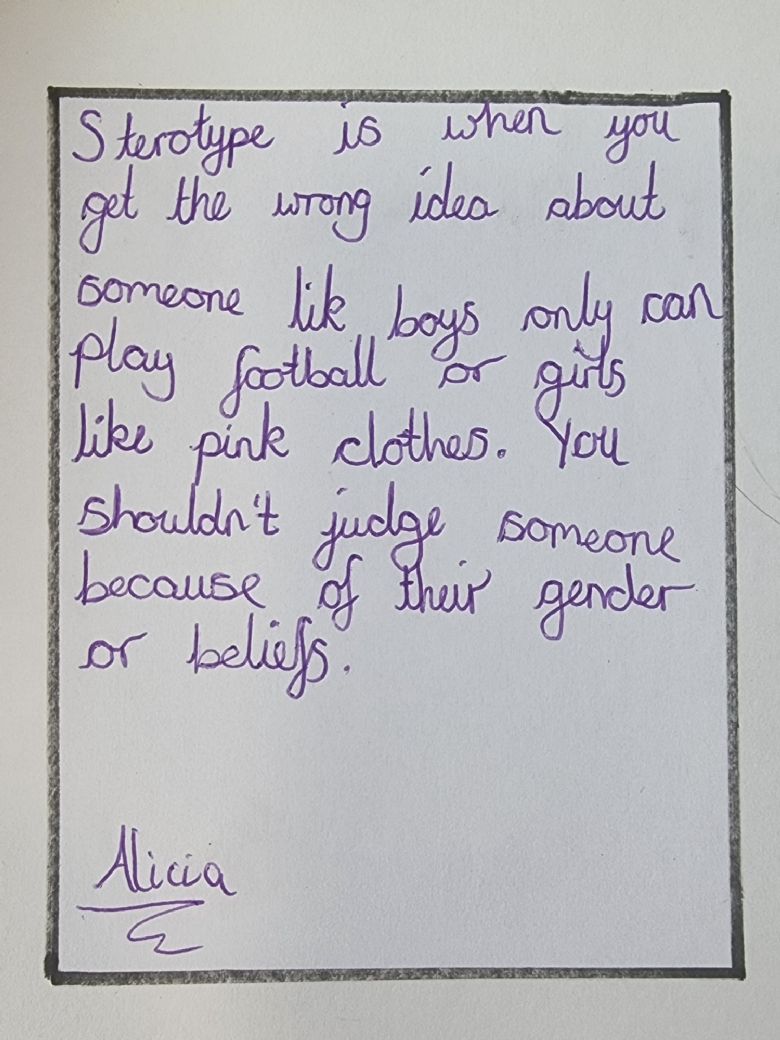 Sterotype is when you
get the wrong idea about
someone lik boys only can
play football or girls
like pink clothes. You
shouldn't judge someone
because of their gender
or beliefs.
Alicia